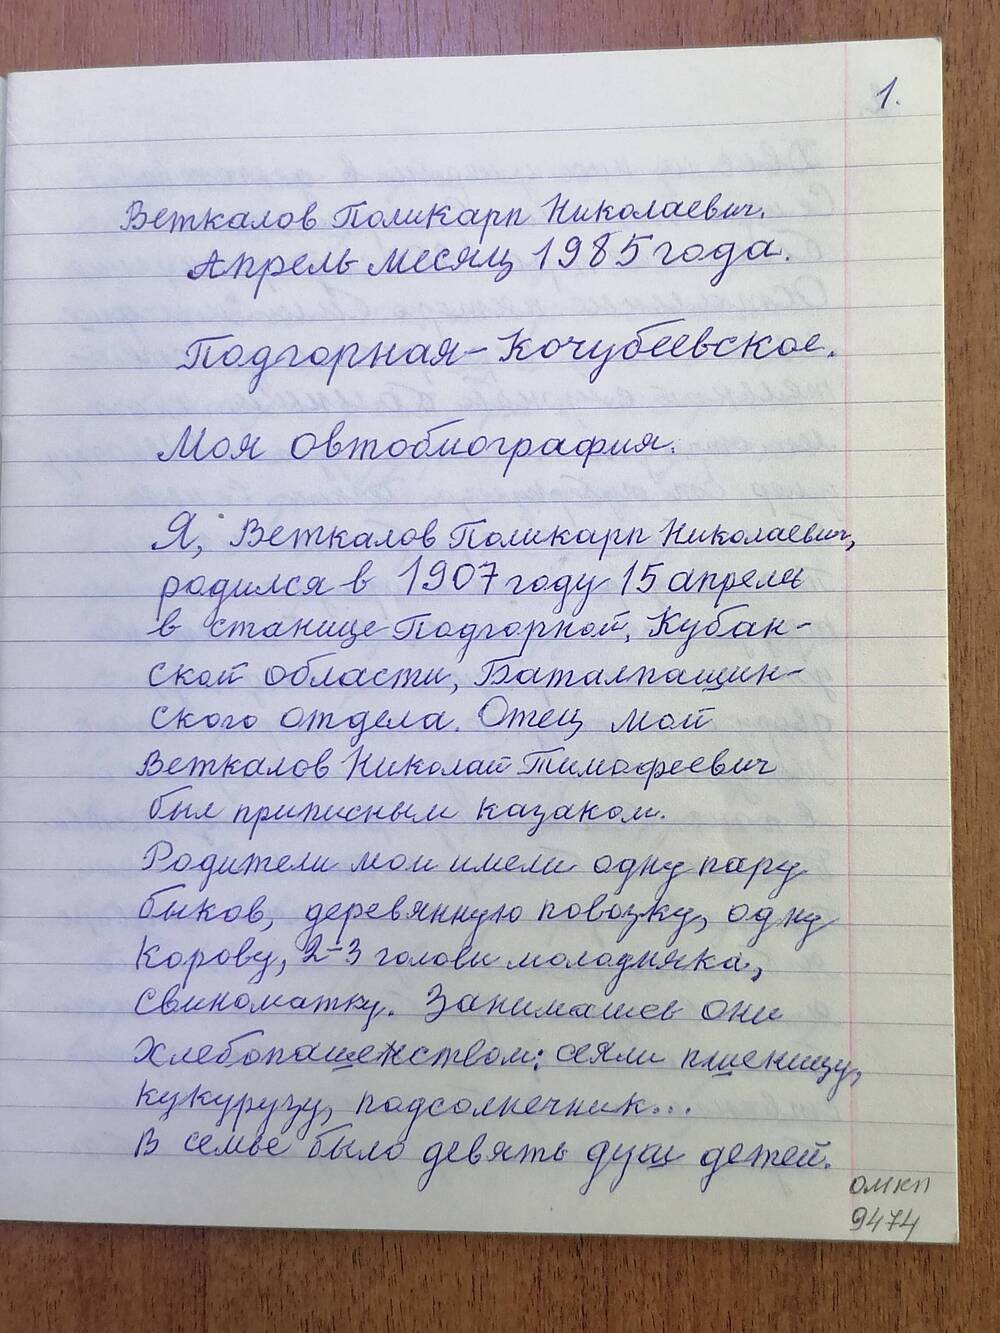 1.
Веткалов Поликарп Николаевич.
Апрель месяц 1985 года.
Подгорная-Кочубеевское.
Моя автобиография.
Я, Веткалов Поликарп Николаевич,
родился в 1907 году 15 апреля
в станице Подгорной, Кубан-
ской области, Баталпащин-
ского отдела. Отец мой
Веткалов Николай Тимофеевич
был приписным казаком.
Родители мои имели одну пару
быков, деревянную повозку, одну
корову, 2-3 головы молодняка,
свиноматку. Занимались они
хлебопашенством: сеяли пшеницу,
кукурузу, подсолнечник...
В семье было девять душ детей.
ОМКП
9474